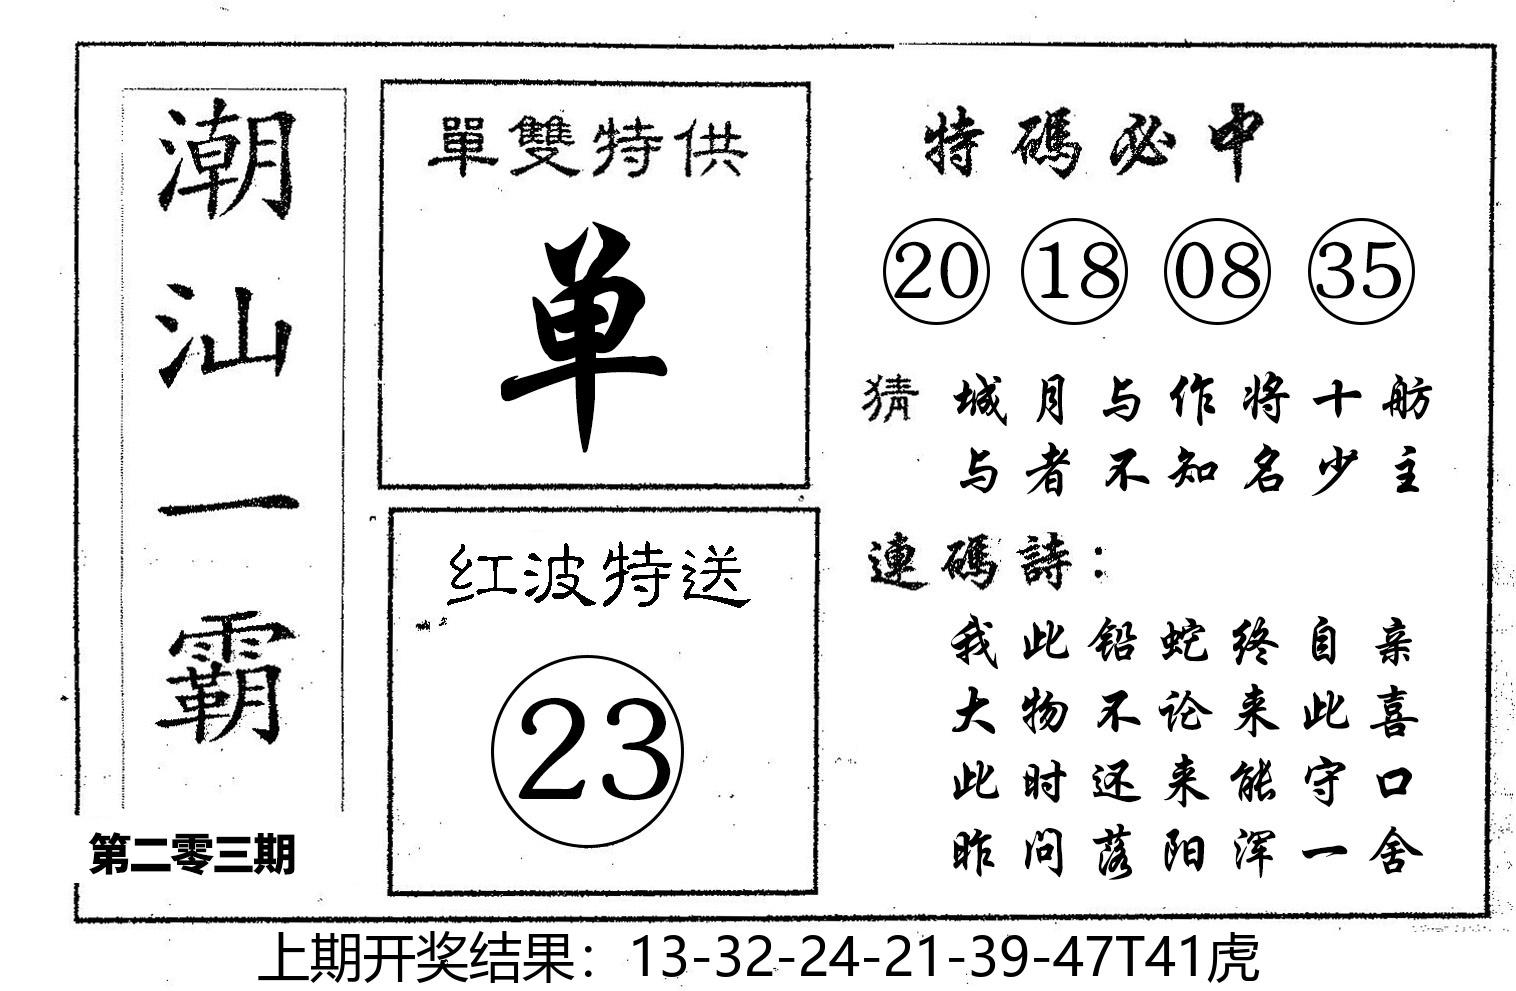 潮汕一霸
第二零三期
單雙特供
单
红波特送
23
特碼必中
20 18 08 35
猜 城月与作将十舫
与者不知名少主
連碼詩：
我此铅蛇终自亲
大物不论来此喜
此时还来能守口
昨问落阳浑一舍
上期开奖结果：13-32-24-21-39-47T41虎